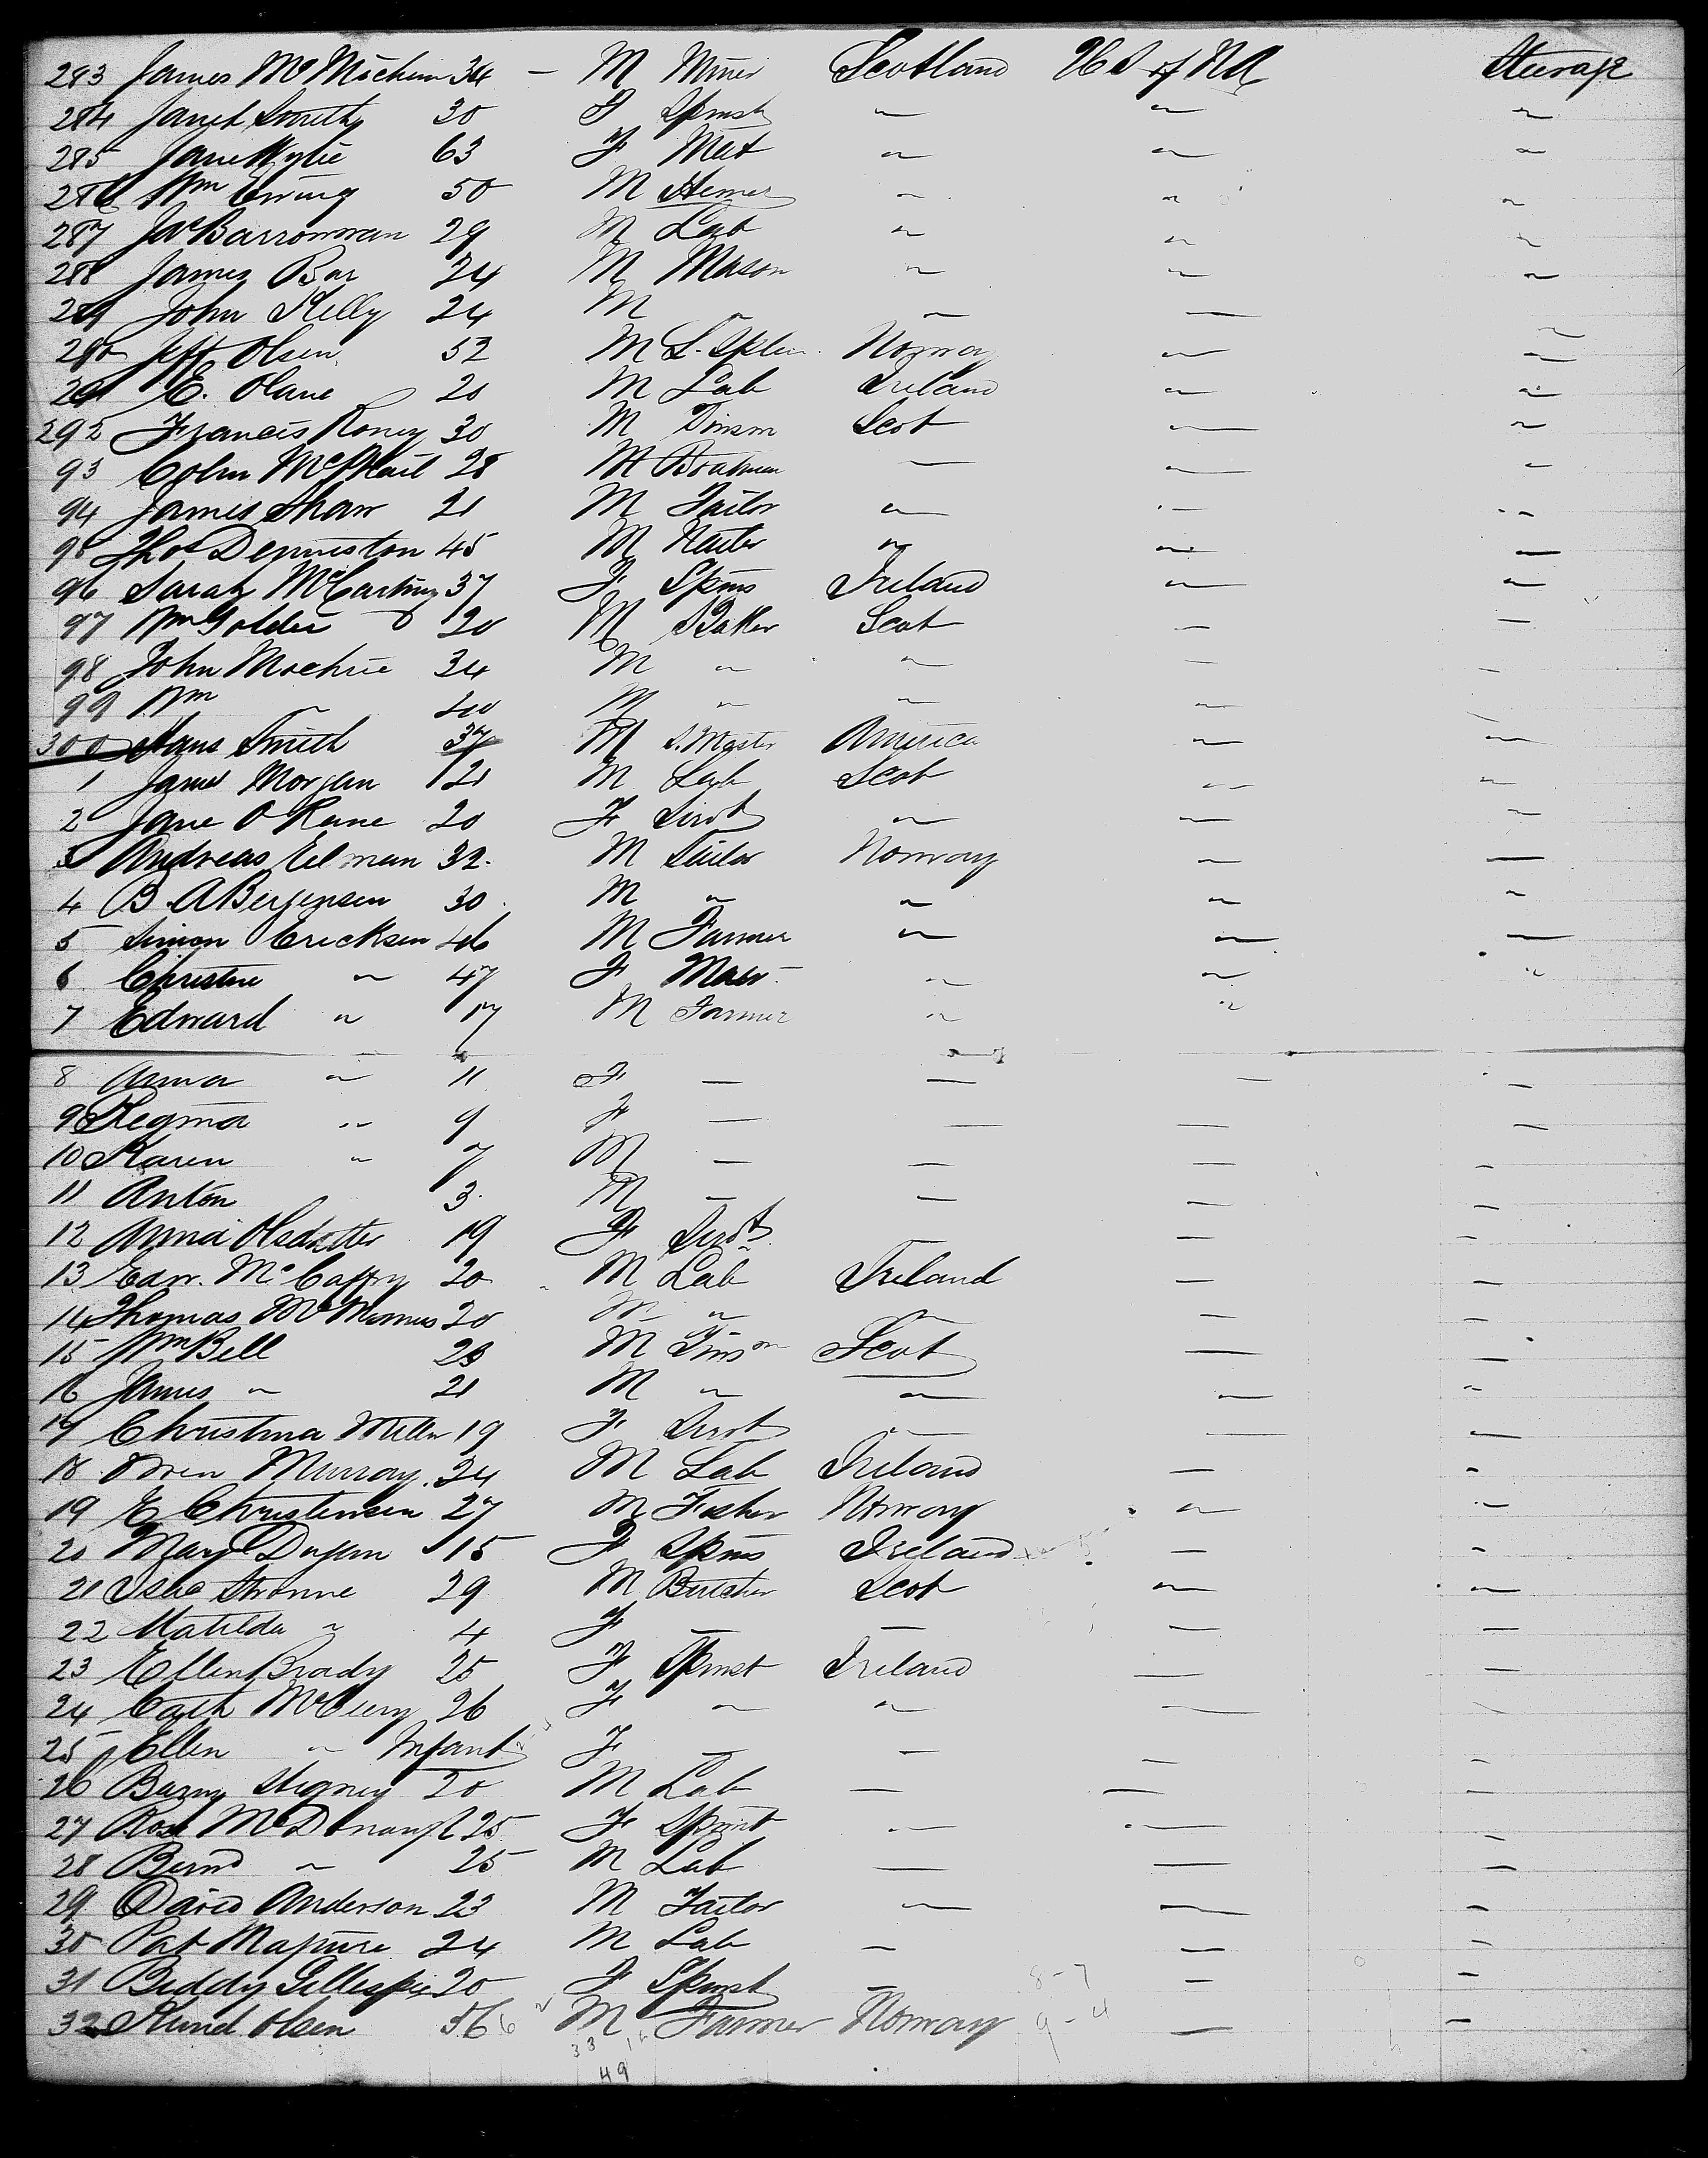 283 James McMichim 34 — M Miner Scotland U S of NA Steerage
284 Janet Smith 30 F Spinst " " "
285 Jane Wylie 63 F Mat " " "
286 Wm Ewing 50 M " " "
287 Jas Barrowman 29 M Lab " " "
288 James Bar 24 M Mason " " "
289 John Kelly 24 M " —
290 Jeff Olsen 52 M Norway " "
291 E. Olane 20 M Lab Ireland " "
292 Francis Roney 30 M Tinsm Scot — "
93 Colin McPhail 28 M Boatman — — "
94 James Shaw 21 M Tailor " — "
95 Thos Denniston 45 M " " —
96 Sarah McCartney 37 F Spins Ireland " "
97 Wm Goldie 20 M Baker Scot — —
98 John Mochrie 34 M " " — —
99 Wm " 40 M " " "
300 Hans Smith 37 M S. Master America " "
1 James Morgan 21 M Lab Scot " "
2 Jane O Kane 20 F Servt " — "
3 Andreas Eelman 32 M Tailor Norway — —
4 B A Bergensen 30 M " " " "
5 Simon Ericksen 46 M Farmer " " —
6 Christine " 47 F " " "
7 Edward " 17 M Farmer " "
8 Anna " 11 F — — — —
9 Regina " 9 F — — — —
10 Karen " 7 M — — — —
11 Anton 3 M — — — —
12 Anna Olsdatter 19 F Servt — —
13 Edw. McCaffry 20 M Lab Ireland — —
14 Thomas McManus 20 M " " — —
15 Wm Bell 23 M Tinsm Scot — —
16 James " 21 M " " " "
17 Christina Miller 19 F Servt — — —
18 Owen Murray 24 M Lab Ireland — "
19 E Christensen 27 M Fisher Norway " —
20 Mary Dugan 15 F Spins Ireland — "
21 Isac Stronne 29 M Butcher Scot " "
22 Matilda " 4 F — — — —
23 Ellen Brady 25 F Spinst Ireland — —
24 Cath McCurry 26 F " " — —
25 Ellen " Infant F — — — —
26 Barny 20 M Lab — — —
27 Rose McDonaugh 25 F Spinst — — —
28 Bernd " 25 M Lab — — —
29 David Anderson 23 M Tailor — — —
30 Pat Maguire 24 M Lab — — —
31 Biddy Gillespie 20 F Spinst — — — 8-7
32 Knud Olsen 56 M Farmer Norway 9-4 — —
33
49